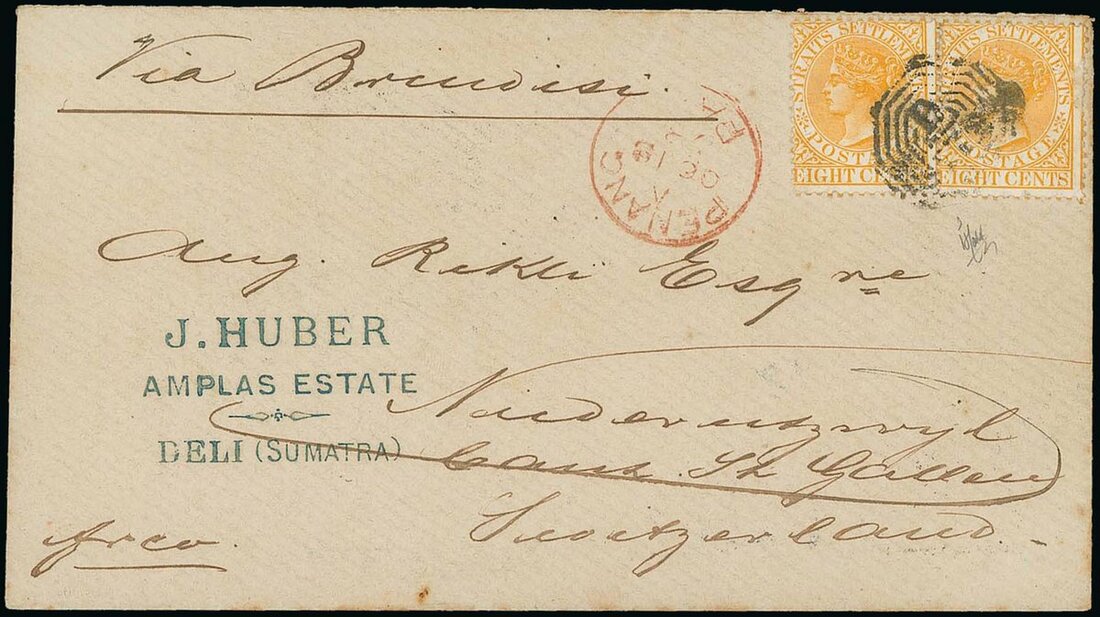 Via Brindisi.
STRAITS SETTLEMENTS
POSTAGE
EIGHT CENTS
STRAITS SETTLEMENTS
POSTAGE
EIGHT CENTS
B
PENANG
Aug. Rikli Esqre
J. HUBER
AMPLAS ESTATE
DELI (SUMATRA)
Niederutzwyl
Cant. St. Gallen
Switzerland.
frco.